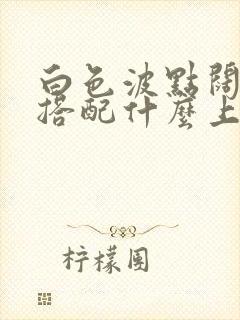 白色波點闊
搭配什麼上
柠檬圆